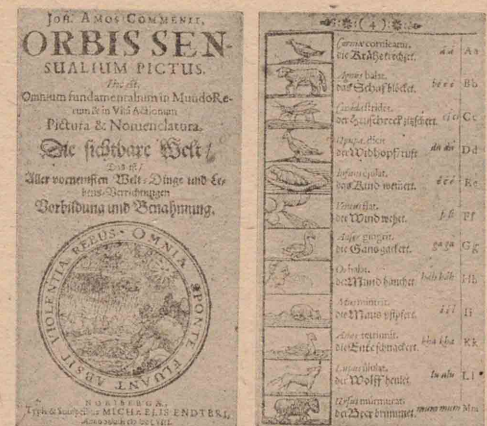 JOH. AMOS COMMENII,
ORBIS SEN-
SUALIUM PICTUS.
Hoc est,
Omnium fundamentalium in Mundo Re-
rum & in Vitâ Actionum
Pictura & Nomenclatura.
Die sichtbare Welt/
Das ist/
Aller vornemsten Welt-Dinge und Le-
bens-Verrichtungen
Vorbildung und Benahmung.
OMNIA SPONTE FLUANT ABSIT VIOLENTIA REBUS
NORIBERGÆ,
Typis & Sumptibus MICHAELIS ENDTERI,
( 4 )
Cornix cornicatur,
die Krähe krechzet. á á A a
Agnus balat,
das Schaf blöcket. B b
Cicada stridet,
der Heuschreck zitschert. cì cì C c
Upupa dicit
der Widhopf ruft du du D d
Infans ejulat,
das Kind weinert. é é é E e
Ventus flat,
der Wind wehet. F f
Anser gingrit,
die Gans gackert. ga ga G g
Os halat,
der Mund hauchet háh háh H h
Mus mintrit,
die Maus pfipfert. í í í I i
Anas tetrinnit,
die Ente schnackert. kha kha K k
Lupus ululat,
der Wolff heulet. lu ulu L l
Ursus murmurat,
der Beer brummet. mum mum M m